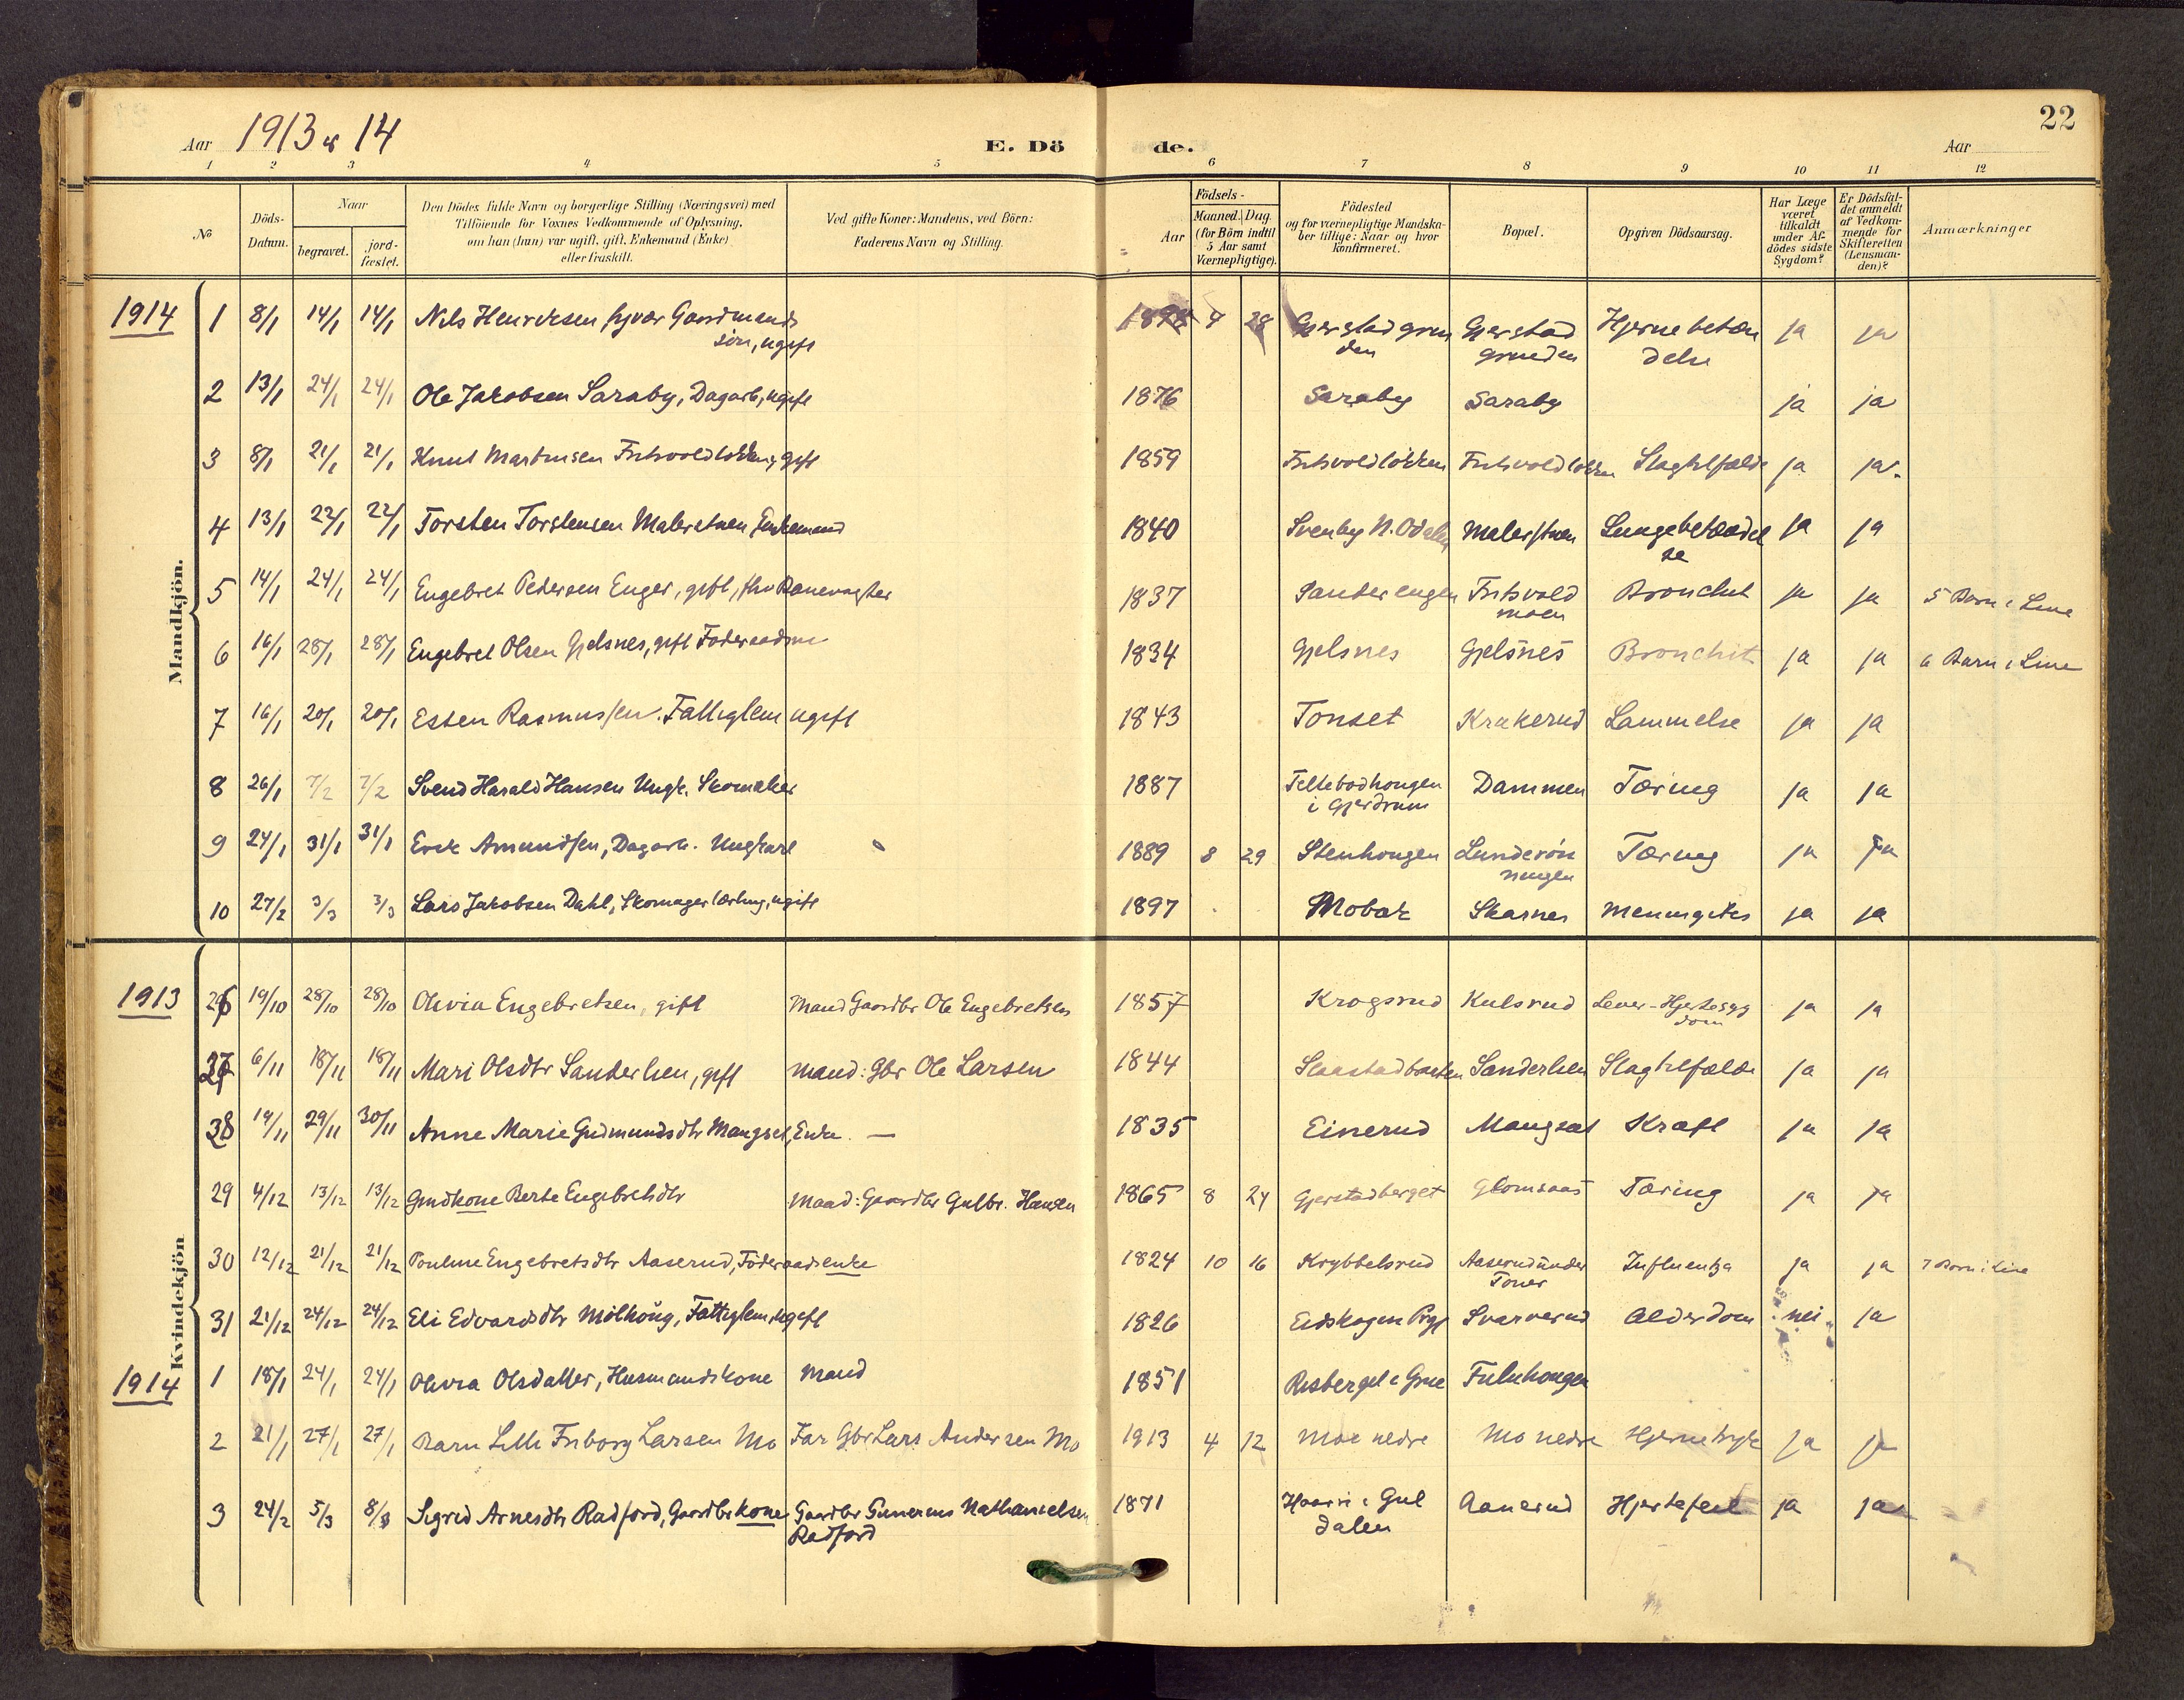 22
Aar 1913 & 14 E. Dö de. Aar
1 2 3 4 5 6 7 8 9 10 11 12
No
Döds-Datum.
Naar
begravet.
jord-fæstet.
Den Dödes fulde Navn og borgerlige Stilling (Næringsvei) med
Tilföiende for Voxnes Vedkommende af Oplysning,
om han (hun) var ugift, gift, Enkemand (Enke)
eller fraskilt.
Ved gifte Koner: Mandens, ved Börn:
Faderens Navn og Stilling.
Födsels-
Aar
Maaned. Dag.
(for Börn indtil
5 Aar samt
Værnepligtige).
Födested
og for værnepligtige Mandska-
ber tillige: Naar og hvor
konfirmeret.
Bopæl.
Opgiven Dödsaarsag.
Har Læge
været
tilkaldt
under Af-
dödes sidste
Sygdom?
Er Dödsfal-
det anmeldt
af Vedkom-
mende for
Skifteretten
(Lensman-
den)?
Anmærkninger
Mandkjön.
1914 1 8/1 14/1 14/1 Nils Henriksen Gaardmands 4 28 Gjerstad grun Gjerstad Hjernebetæn ja ja
sön, ugift den grunden delse
2 13/1 24/1 24/1 Ole Jakobsen Saraby, Dagarb, ugift 1876 Saraby Saraby ja ja
3 8/1 21/1 21/1 Knut Martinsen Fritsvoldlökken, gift 1859 Fritsvoldlökken Fritsvoldlökken Slagtilfælde ja ja.
4 13/1 22/1 22/1 Torsten Torstensen Malerstuen Enkemand 1840 Svenby N. Odalen Malerstuen Lungebetændel ja ja
se
5 14/1 24/1 24/1 Engebret Pedersen Enger, gift, fhv Banevogter 1837 Sanderengen Fritsvold Bronchit ja ja 5 Barn i Live
moen
6 16/1 28/1 28/1 Engebret Olsen Gjelsnes, gift Föderaadsm 1834 Gjelsnes Gjelsnes Bronchit ja ja 6 Barn i Live
7 16/1 20/1 20/1 Esten Rasmussen. Fattiglem ugift 1843 Tönset Krakerud Lammelse ja ja
8 26/1 7/2 7/2 Svend Harald Hansen Ungk. Skomaker 1887 Teltebodhougen Dammen Tæring ja ja
i Gjerdrum
9 24/1 31/1 31/1 Erik Amundsen, Dagarb. Ungkarl 1889 8 29 Stenhougen Lunderön Tæring ja ja
ningen
10 27/2 3/3 3/3 Lars Jakobsen Dahl, Skomagerlærling, ugift 1897 Mobak Skarnes Meningitis ja ja
Kvindekjön
1913 26 19/10 28/10 28/10 Olivia Engebretsen, gift Mand Gaardbr Ole Engebretsen 1857 Krogsrud Kulsrud Lever-Hjertesyg ja ja
dom
27 6/11 18/11 18/11 Mari Olsdtr Sanderlien, gift Mand: Gbr Ole Larsen 1844 Slaastadbraaten Sanderlien Slagtilfælde ja ja
28 19/11 29/11 30/11 Anne Marie Gudmundsdtr Mangset, Enke. — 1835 Einerud Mangset Kræft ja ja
29 4/12 13/12 13/12 Gaardkone Berte Engebretsdtr Mand: Gaardbr Gulbr. Hansen 1865 8 24 Gjerstadberget Glomsaas Tæring ja ja
30 12/12 21/12 21/12 Pauline Engebretsdtr Aaserud, Föderaadsenke 1824 10 16 Krybbelsrud Aaserud under Influenza ja ja 7 Barn i Live
Toner
31 21/12 24/12 24/12 Eli Edvardsdtr Mölhöug, Fattiglem, ugift 1826 Eidskogen Prgj Svarverud Alderdom nei ja
1914 1 18/1 24/1 24/1 Olivia Olsdatter, Husmandskone Mand 1851 Risberget i Grue Fuluhougen
2 21/1 27/1 27/1 Barn Lilli Friborg Larsen Mo Far Gbr Lars Andersen Mo 1913 4 12 Moe nedre Mo nedre Hjernetryk ja ja
3 24/2 5/3 8/3 Sigrid Arnesdtr Radfjord, Gaardbrkone Gaardbr Gunerius Nathanielsen 1871 Haarr i Gul Aanerud Hjertefeil ja ja
Radfjord dalen